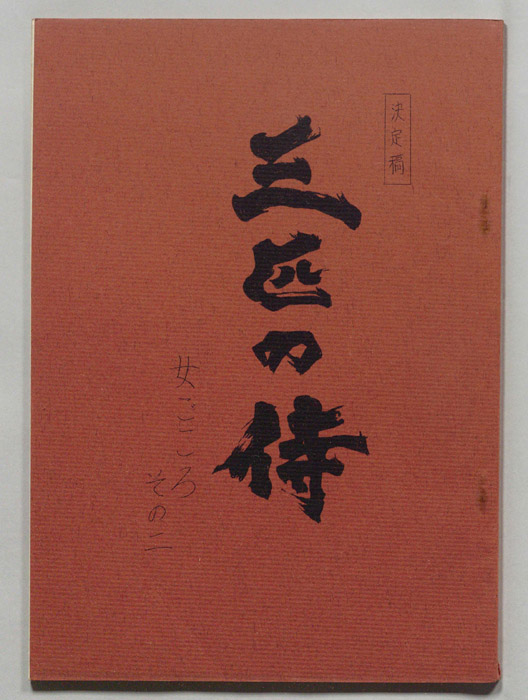 決定稿
三匹の侍
女ごころ
その二